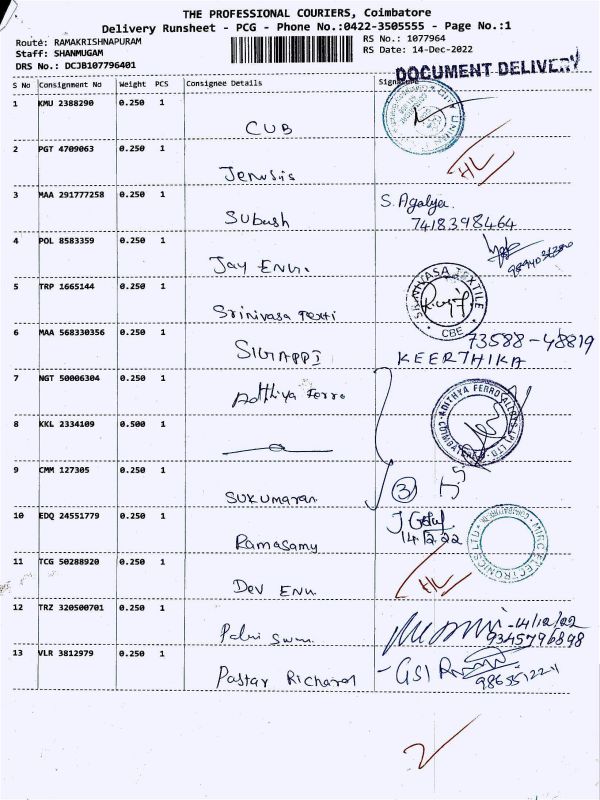 THE PROFESSIONAL COURIERS, Coimbatore
Delivery Runsheet - PCG - Phone No.:0422-3505555 - Page No.:1
Route: RAMAKRISHNAPURAM
RS No.: 1077964
Staff: SHANMUGAM
RS Date: 14-Dec-2022
DRS No.: DCJB107796401
DOCUMENT DELIVERY
S No Consignment No Weight PCS Consignee Details Signature
1 KMU 2388290 0.250 1 CUB
2 PGT 4709063 0.250 1
HL
3 MAA 291777258 0.250 1 Subash S. Agalya
7418398464
4 POL 8583359 0.250 1 Jay Enu.
5 TRP 1665144 0.250 1 Srinivasa Texti
SRINIVASA TEXTILE
CBE
6 MAA 568330356 0.250 1 SIGAPPI 73588-48819
KEERTHIKA
7 NGT 50006304 0.250 1 Ferro
ADITHYA FERRO ALLOYS (P) LTD.
8 KKL 2334109 0.500 1
9 CMM 127305 0.250 1 SUKUMARAN 3
10 EDQ 24551779 0.250 1 Ramasamy
14/12/22
MIRC ELECTRONICS LTD
11 TCG 50288920 0.250 1 DEV ENU.
HL
12 TRZ 320500701 0.250 1 -14/12/22
9345796898
13 VLR 3812979 0.250 1 Pastar Richard